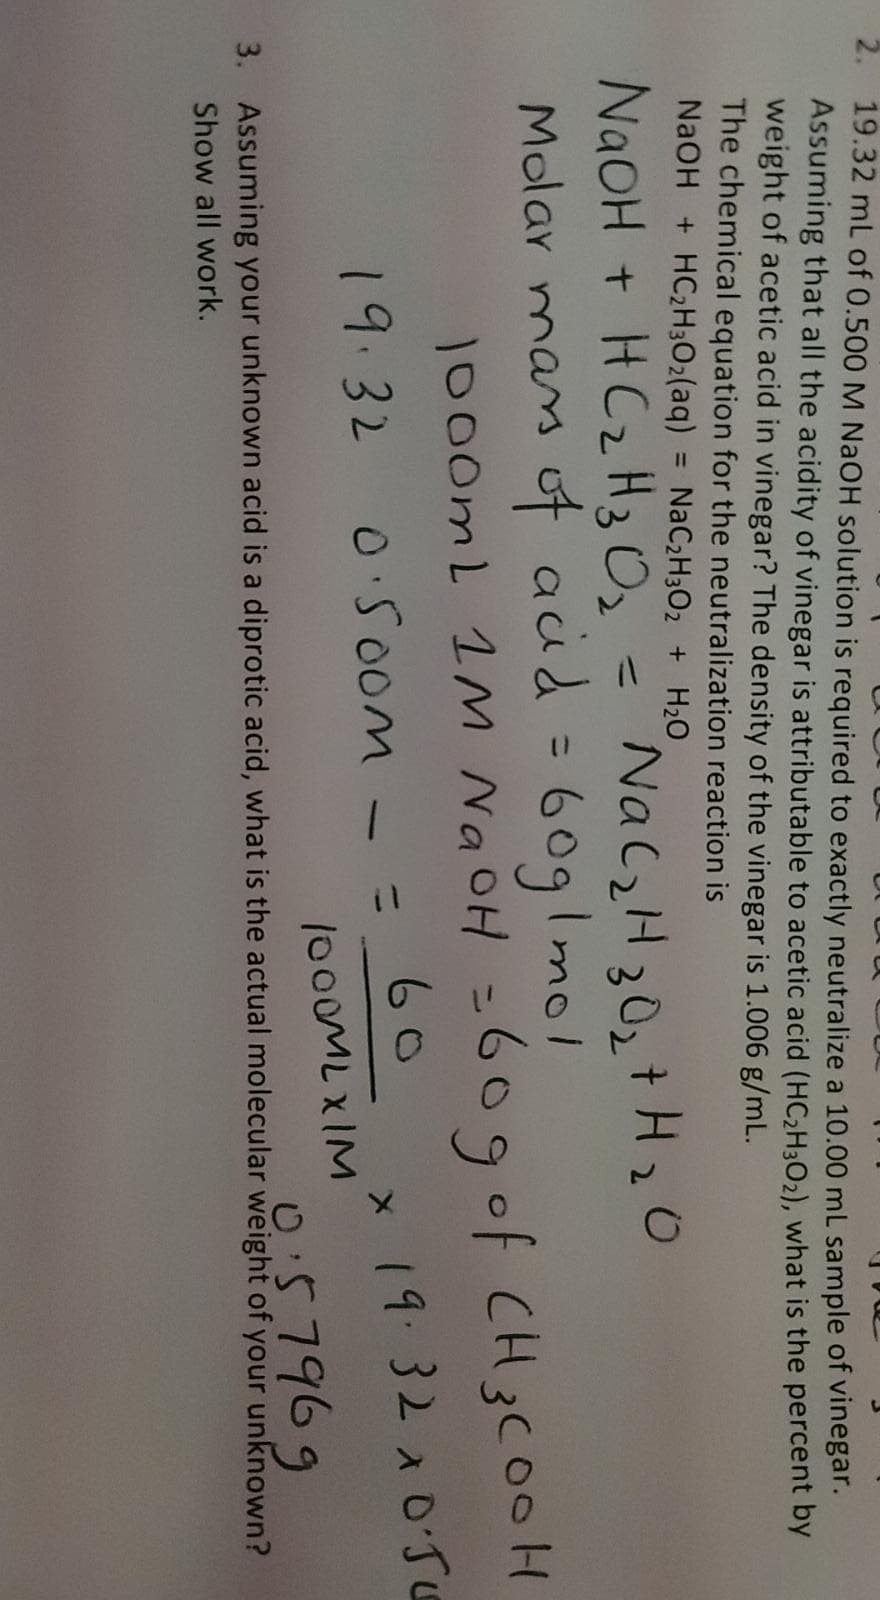 2. 19.32 mL of 0.500 M NaOH solution is required to exactly neutralize a 10.00 mL sample of vinegar.
Assuming that all the acidity of vinegar is attributable to acetic acid (HC₂H₃O₂), what is the percent by
weight of acetic acid in vinegar? The density of the vinegar is 1.006 g/mL.
The chemical equation for the neutralization reaction is
NaOH + HC₂H₃O₂(aq) = NaC₂H₃O₂ + H₂O
NaOH + HC₂H₃O₂ = NaC₂H₃O₂ + H₂O
Molar mass of acid = 60g/mol
1000mL 1M NaOH = 60g of CH₃COOH
19.32 0.500M — = 60 x 19.32 x 0.50
1000ML x 1M
0.5796g
3. Assuming your unknown acid is a diprotic acid, what is the actual molecular weight of your unknown?
Show all work.